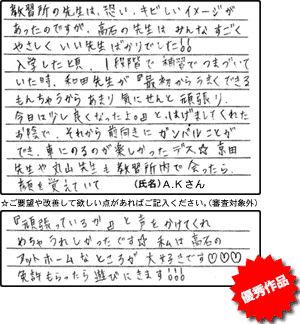 教習所の先生は、恐い、キビしいイメージが
あったのですが、高石の先生は みんな すごく
やさしく いい先生 ばかりでした!!
入学した頃、1段階で 補習で つまづいて
いた時、和田先生が『最初からうまくできる
もんちゃうから あまり 気にせんと 頑張り。
今日は少し良くなったよ。』と、はげましてくれた
お陰で、それから前向きに ガンバルことが
でき、車にのるのが楽しかったデス☆ 京田
先生や丸山先生も 教習所内で会ったら、
顔を覚えていて
(氏名) A.K さん
☆ご要望や改善して欲しい点があればご記入ください。(審査対象外)
『頑張っているか』と声をかけてくれ
めちゃうれしかったです☆ 私は高石の
アットホームなところが 大好きです♡♡♡
免許もらったら遊びにきます!!!
優秀作品